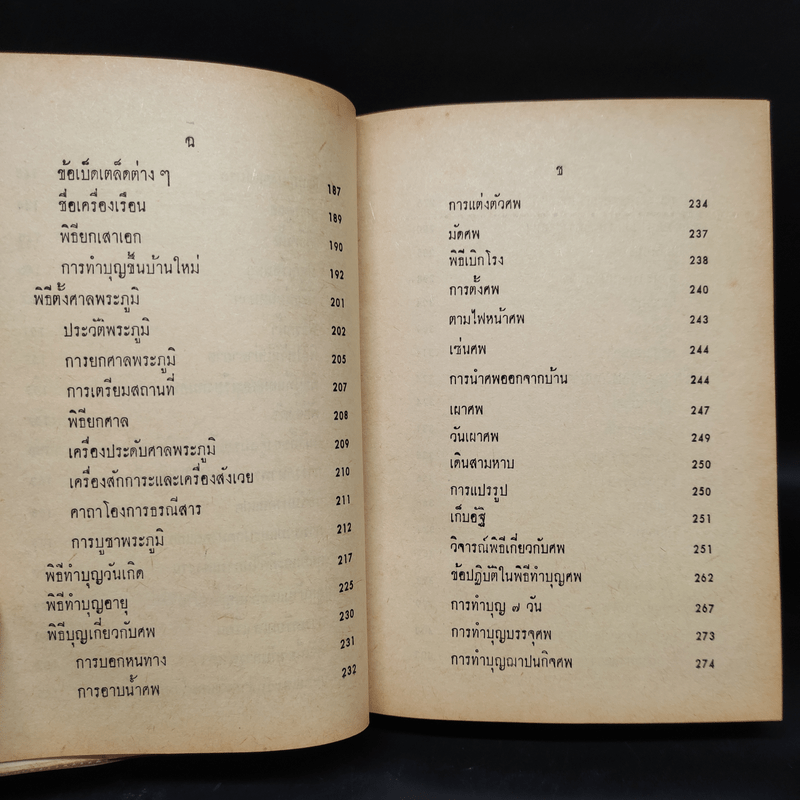 ฉ
ข้อเบ็ดเตล็ดต่าง ๆ 187
ชื่อเครื่องเรือน 189
พิธียกเสาเอก 190
การทำบุญขึ้นบ้านใหม่ 192
พิธีตั้งศาลพระภูมิ 201
ประวัติพระภูมิ 202
การยกศาลพระภูมิ 205
การเตรียมสถานที่ 207
พิธียกศาล 208
เครื่องประดับศาลพระภูมิ 209
เครื่องสักการะและเครื่องสังเวย 210
คาถาโองการธรณีสาร 211
การบูชาพระภูมิ 212
พิธีทำบุญวันเกิด 217
พิธีทำบุญอายุ 225
พิธีบุญเกี่ยวกับศพ 230
การบอกหนทาง 231
การอาบน้ำศพ 232
ช
การแต่งตัวศพ 234
มัดศพ 237
พิธีเบิกโรง 238
การตั้งศพ 240
ตามไฟหน้าศพ 243
เซ่นศพ 244
การนำศพออกจากบ้าน 244
เผาศพ 247
วันเผาศพ 249
เดินสามหาบ 250
การแปรรูป 250
เก็บอัฐิ 251
วิจารณ์พิธีเกี่ยวกับศพ 251
ข้อปฏิบัติในพิธีทำบุญศพ 262
การทำบุญ ๗ วัน 267
การทำบุญบรรจุศพ 273
การทำบุญฌาปนกิจศพ 274